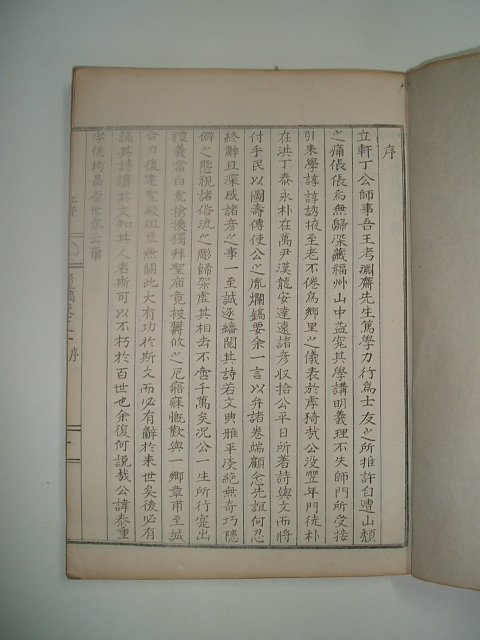 序
立軒丁公師事吾王考淵齋先生篤學力行爲士友之所推許自遭山頹
之痛倀倀焉無歸深藏福州山中益究其學講明義理不失師門所受接
引來學諄諄誘掖至老不倦爲鄕里之儀表於虖猗哉公沒翌年門徒朴
在洪丁泰永朴在萬尹漢龍安達遠諸彦收拾公平日所著詩與文而將
付手民以圖壽傳使公之胤爛鎬要余一言以弁諸卷端顧念先誼何忍
終辭且深感諸彦之事一至誠逐繙閱其詩若文典雅平淡絶無奇巧隱
僻之態視諸俗流之彫餙架虛其相去不啻千萬矣况公一生所行寔出
禮義當白虎槍攘獨拜聖庙竟被欝攸之厄寤寐慨歎與一鄕章甫至誠
合力復建聖殿俎豆無闕此大有功於斯文而必有辭於來世矣後必有
誦其詩讀其文知其人者斯可以不朽於百世也余復何說哉公諱泰重
字德均昌原世家云爾
序